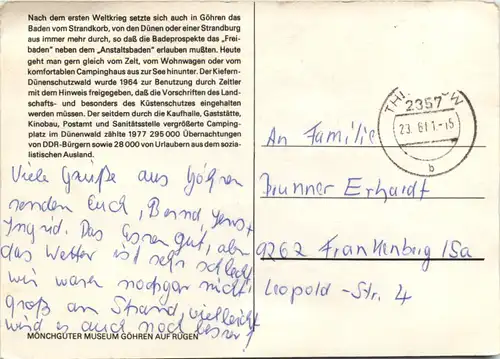 Nach dem ersten Weltkrieg setzte sich auch in Göhren das
Baden vom Strandkorb, von den Dünen oder einer Strandburg
aus immer mehr durch, so daß die Badeprospekte das „Frei-
baden" neben dem „Anstaltsbaden" erlauben mußten. Heute
geht man gern gleich vom Zelt, vom Wohnwagen oder vom
komfortablen Campinghaus aus zur See hinunter. Der Kiefern-
Dünenschutzwald wurde 1964 zur Benutzung durch Zeltler
mit dem Hinweis freigegeben, daß die Vorschriften des Land-
schafts- und besonders des Küstenschutzes eingehalten
werden müssen. Der seitdem durch die Kaufhalle, Gaststätte,
Kinobau, Postamt und Sanitätsstelle vergrößerte Camping-
platz im Dünenwald zählte 1977 295 000 Übernachtungen
von DDR-Bürgern sowie 28 000 von Urlaubern aus dem sozia-
listischen Ausland.
Viele Grüße aus Göhren
senden Euch, Bernd, Jens +
Ingrid. Das Essen gut, aber
das Wetter ist sehr schlecht
wir waren noch gar nicht
groß am Strand, vielleicht
wird es auch noch besser!
MÖNCHGUTER MUSEUM GÖHREN AUF RÜGEN
2357
b
An Familie
Brunner Erhardt
9262 Frankenberg/Sa
Leopold-Str. 4